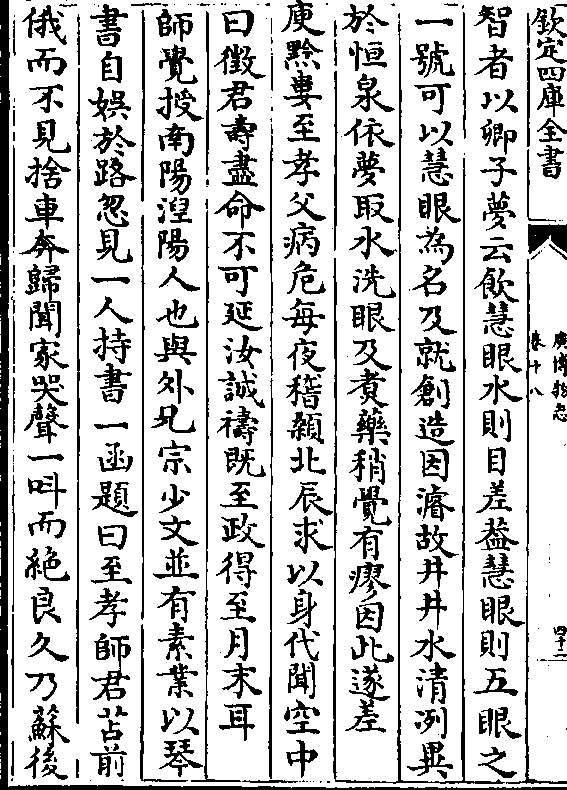 欽定四庫全書
廣博物志
卷十八
四十二
智者以卿子夢云飲慧眼水則目差葢慧眼則五眼之
一號可以慧眼為名及就創造因濬故井井水清冽異
於恒泉依夢取水洗眼及煑藥稍覺有瘳因此遂差
庾黔婁至孝父病危每夜稽顙北辰求以身代聞空中
曰徴君壽盡命不可延汝誠禱既至政得至月末耳
師覺授南陽湼陽人也與外兄宗少文並有素業以琴
書自娛於路忽見一人持書一函題曰至孝師君苫前
俄而不見捨車奔歸聞家哭聲一呌而絶良久乃蘇後